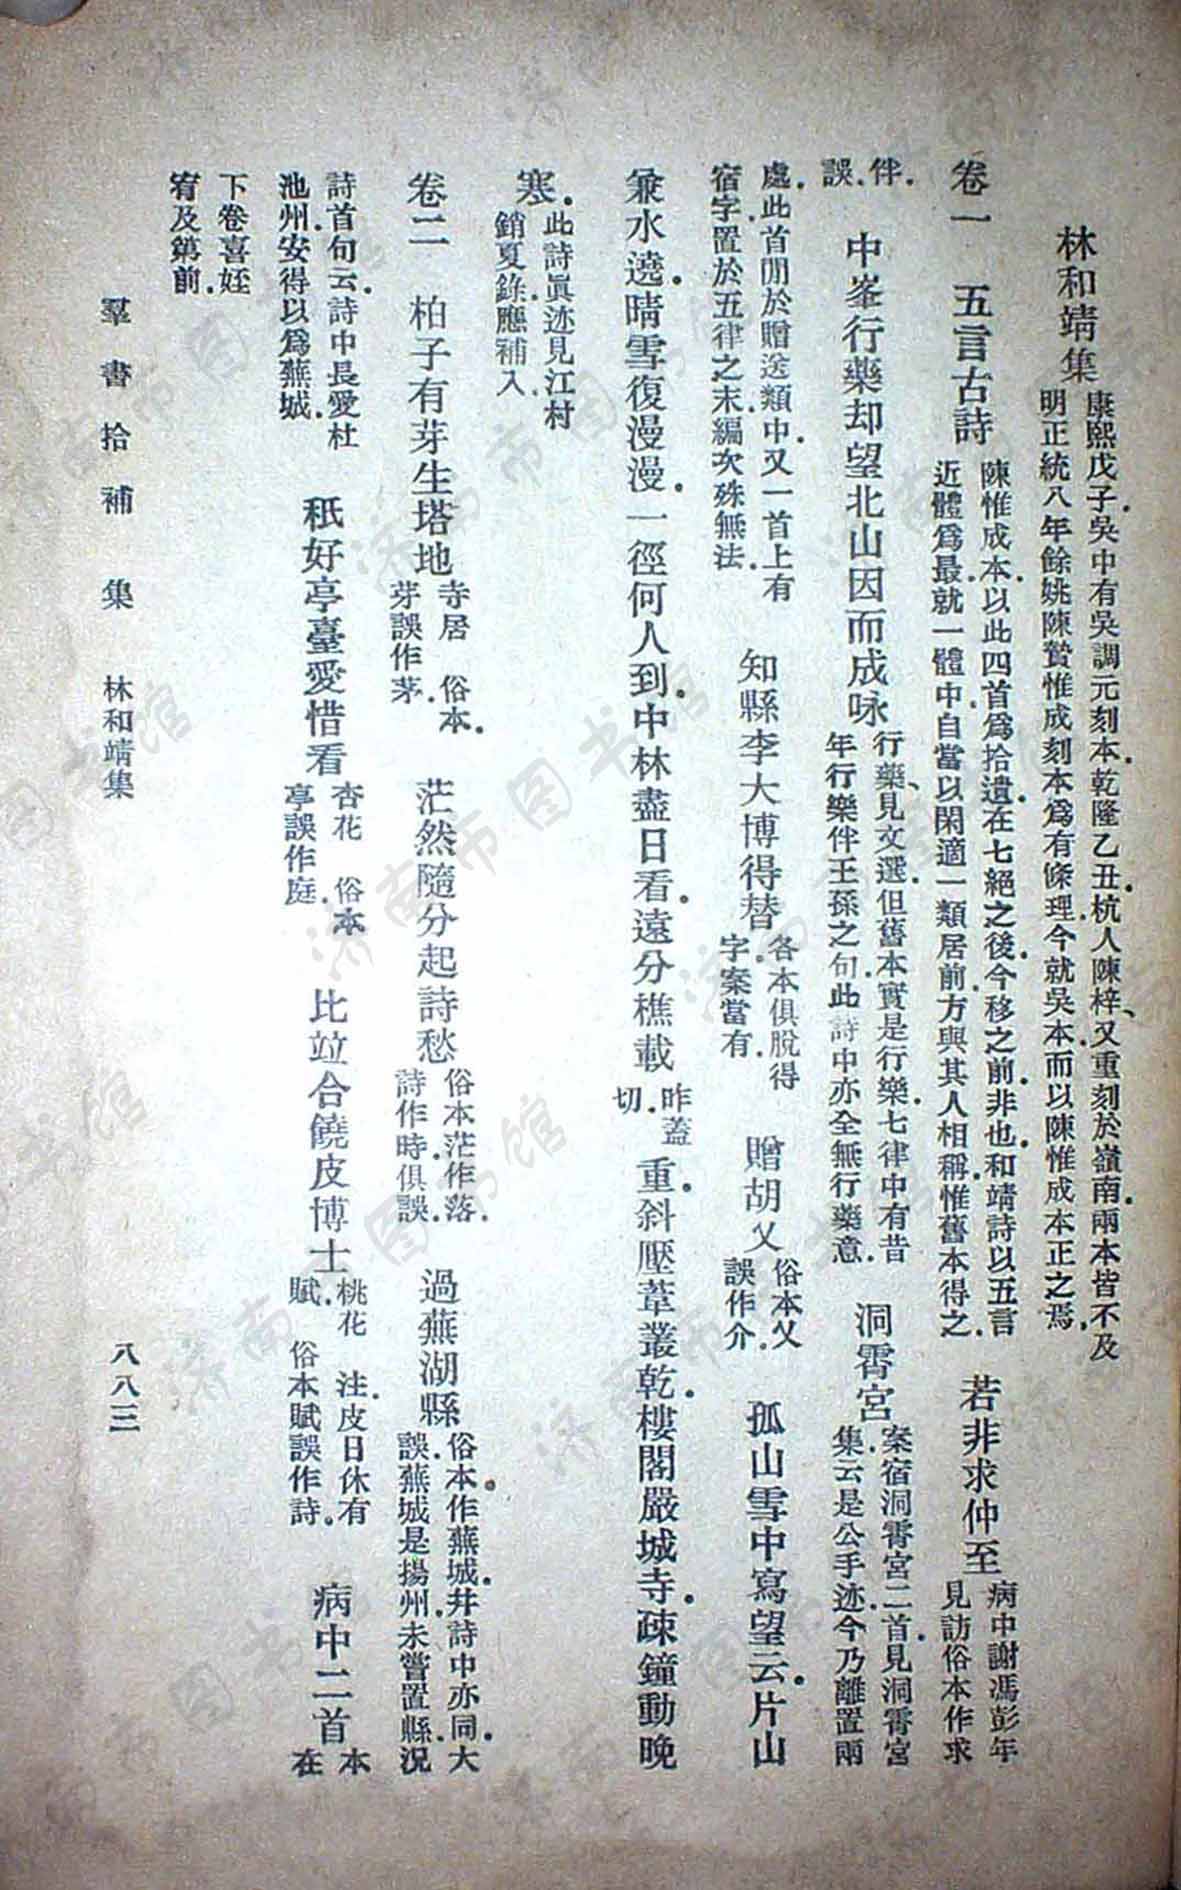 林和靖集 康熙戊子.吳中有吳調元刻本.乾隆乙丑.杭人陳梓、又重刻於嶺南.兩本皆不及
明正統八年餘姚陳贄惟成刻本爲有條理.今就吳本.而以陳惟成本正之焉.
卷一 五言古詩 陳惟成本.以此四首爲拾遺.在七絕之後.今移之前.非也.和靖詩以五言
近體爲最.就一體中.自當以閑適一類居前.方與其人相稱.惟舊本得之. 若非求仲至 病中謝馮彭年
見訪.俗本作求
伴.
誤. 中峯行藥却望北山因而成咏 行藥、見文選.但舊本實是行樂.七律中有昔
年行樂伴王孫之句.此詩中亦全無行藥意. 洞霄宮 案宿洞霄宮二首.見洞霄宮
集.云是公手迹.今乃離置兩
處.此首閒於贈送類中.又一首上有
宿字.置於五律之末.編次殊無法. 知縣李大博得替 各本俱脫得
字.案當有. 贈胡乂 俗本乂
誤作介. 孤山雪中寫望云.片山
兼水遶.晴雪復漫漫.一徑何人到.中林盡日看.遠分樵載 昨蓋
切. 重.斜壓葦叢乾.樓閣嚴城寺.疎鐘動晚
寒. 此詩眞迹.見江村
銷夏錄.應補入.
卷二 柏子有芽生塔地 寺居 俗本.
芽誤作茅. 茫然隨分起詩愁 俗本茫作落.
詩作時.俱誤. 過蕪湖縣 俗本作蕪城.幷詩中亦同.大
誤.蕪城是揚州.未嘗置縣.況
詩首句云.詩中長愛杜
池州.安得以爲蕪城. 秖好亭臺愛惜看 杏花 俗本
亭誤作庭. 比竝合饒皮博士 桃花 注.皮日休有
賦. 俗本賦誤作詩. 病中二首 本
在
下卷喜姪
宥及第前.
羣書拾補 集 林和靖集 八八三